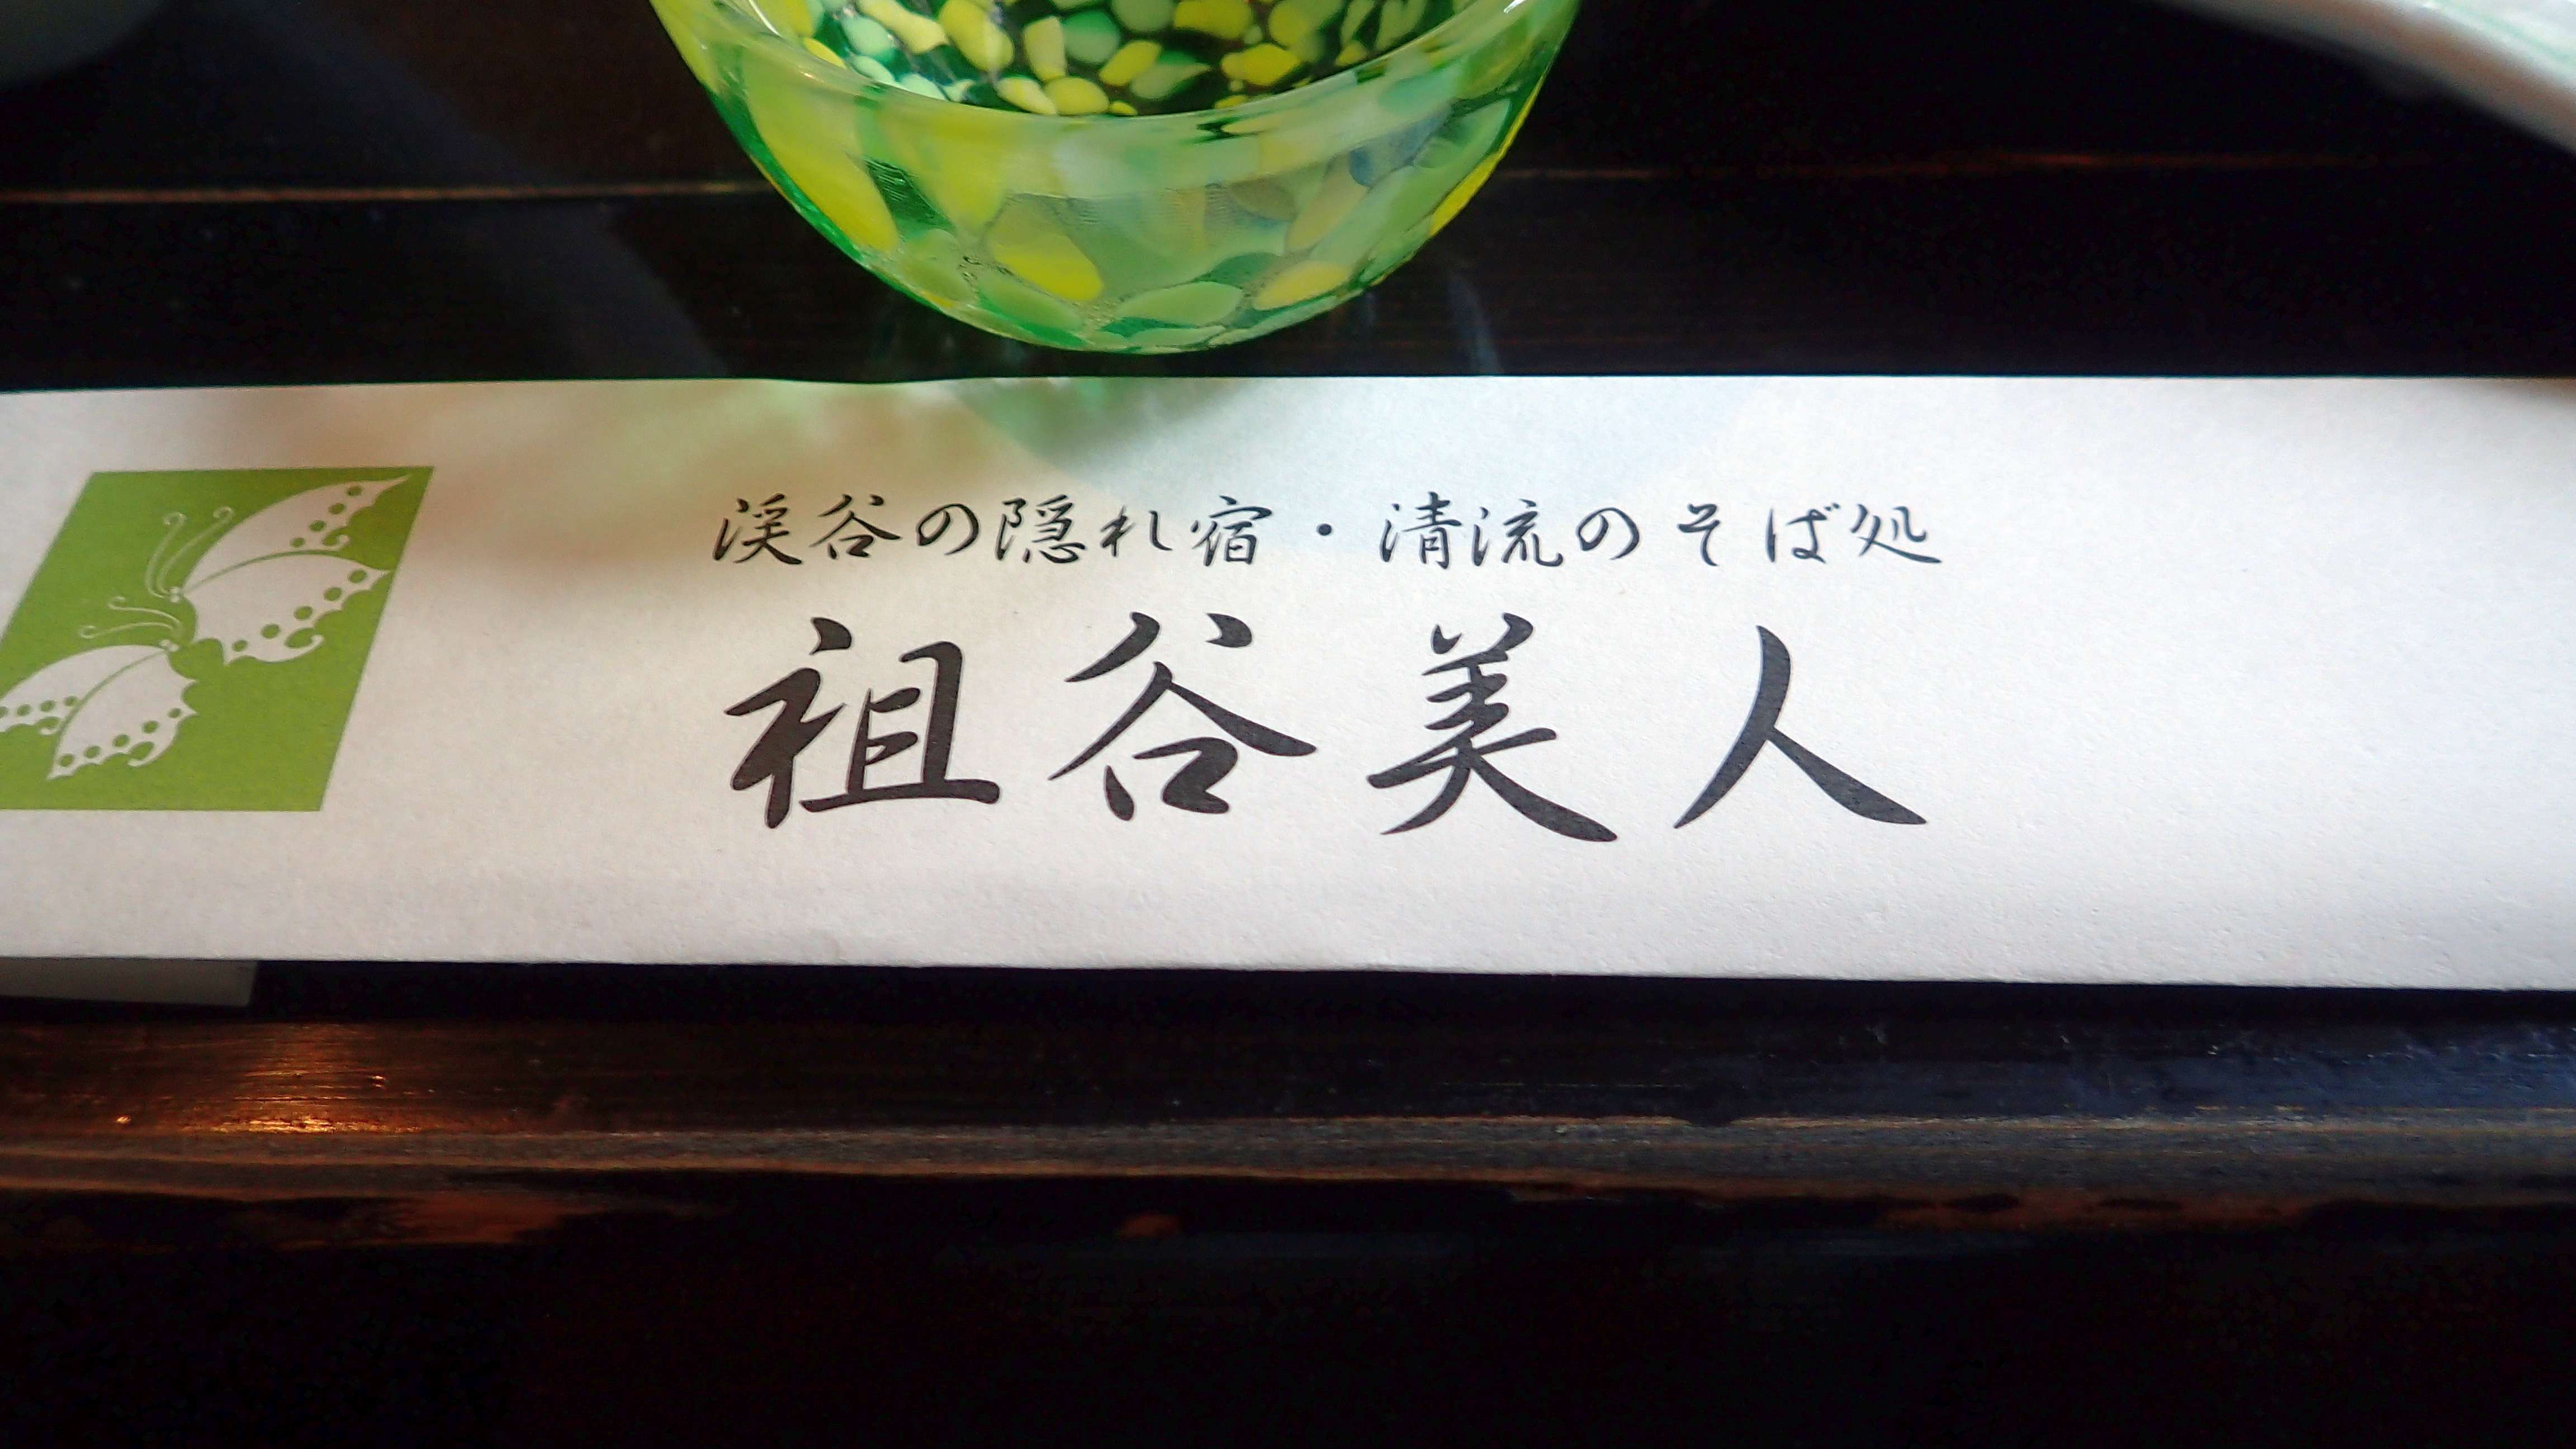 渓谷の隠れ宿・清流のそば処
祖谷美人